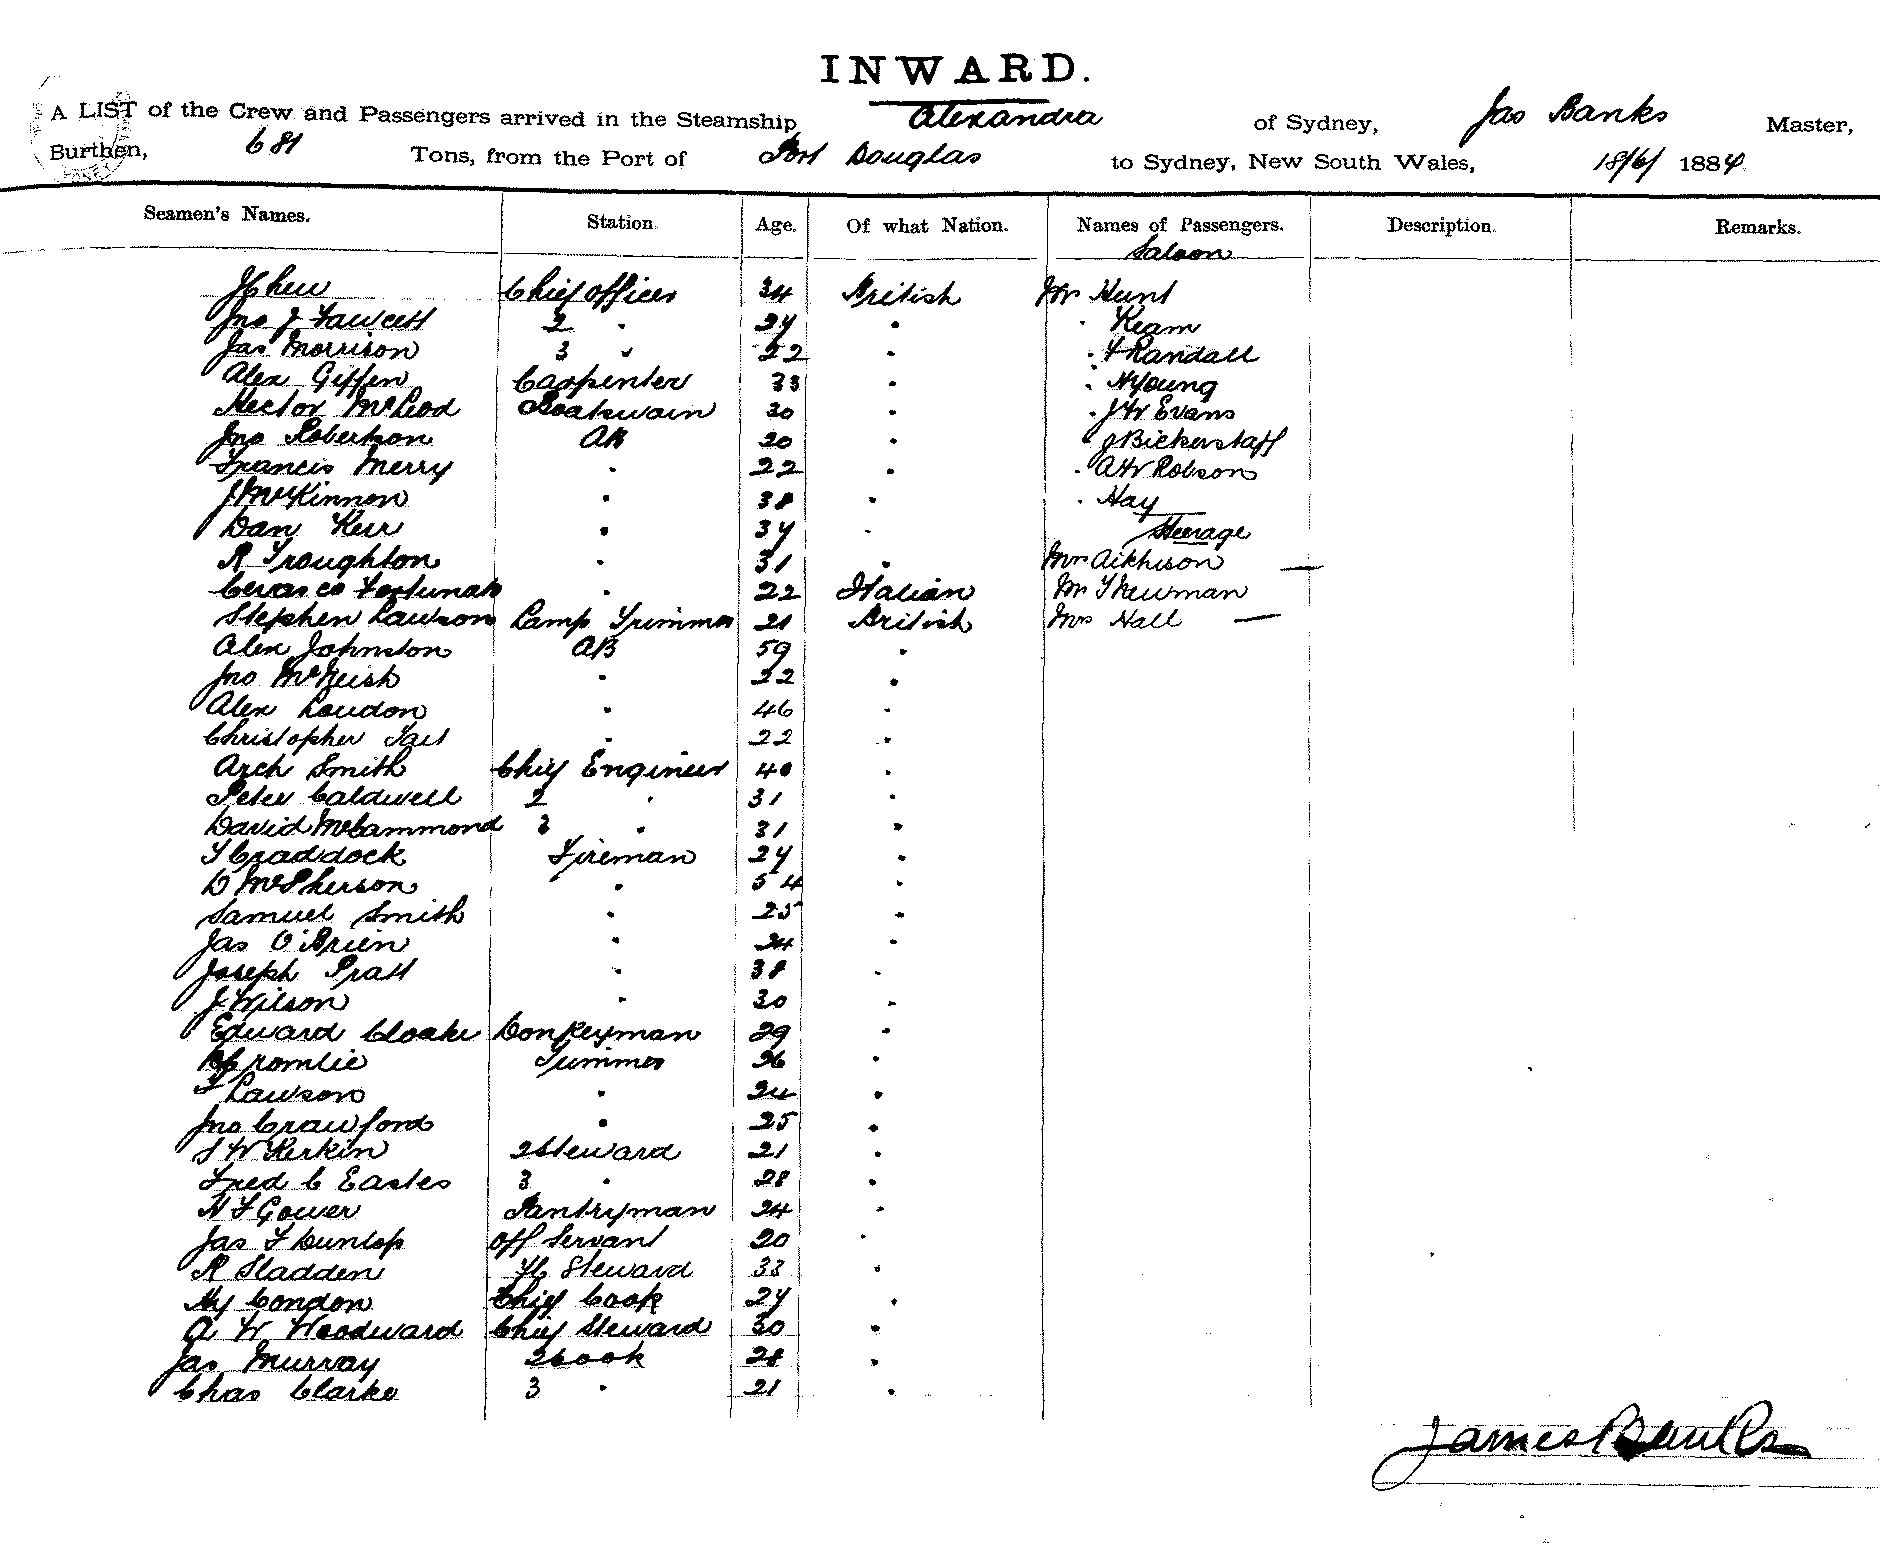 INWARD.
A LIST of the Crew and Passengers arrived in the Steamship Alexandra of Sydney, Jas Banks Master,
Burthen, 681 Tons, from the Port of Port Douglas to Sydney, New South Wales, 18/6/ 1884
Seamen's Names. Station. Age. Of what Nation. Names of Passengers. Description. Remarks.
Saloon
Chief Officer 34 British Mr Hunt
Jno J Fawcett 2 " 27 " " Keam
Jas Morrison 3 " 22 " " F Randall
Alex Giffen Carpenter 33 " " N Young
Hector McLeod Boatswain 30 " " J W Evans
Jno Robertson AB 30 " " J Bickerstaff
Francis Merry " 22 " " A W Robson
J McKinnon " 38 " " Hay
Dan Kerr " 37 " Steerage
R Troughton " 31 " Mrs Aitkinson —
Fortunato " 22 Italian Mr T Newman
Stephen Lawson Lamp Trimmer 21 British Mrs Hall —
Alex Johnston AB 59 "
Jno McNeish " 22 "
Alex Loudon " 46 "
Christopher Tait " 22 "
Arch Smith Chief Engineer 40 "
Peter Caldwell 2 " 31 "
David McCammond 3 " 31 "
T Craddock Fireman 27 "
D McPherson " 54 "
Samuel Smith " 25 "
Jas O'Brien " 24 "
Joseph Pratt " 38 "
J Wilson " 30 "
Edward Cloake Donkeyman 29 "
Cromlie Trimmer 26 "
F Lawson " 24 "
Jno Crawford " 25 "
S W Kerkin 2 Steward 21 "
Fred C Eastes 3 " 28 "
H F Gower Pantryman 24 "
Jas F Dunlop Off Servant 20 "
R Sladden FC Steward 33 "
Hy Condon Chief Cook 27 "
A W Woodward Chief Steward 30 "
Jas Murray 2 Cook 28 "
Chas Clarke 3 " 21 "
James Banks